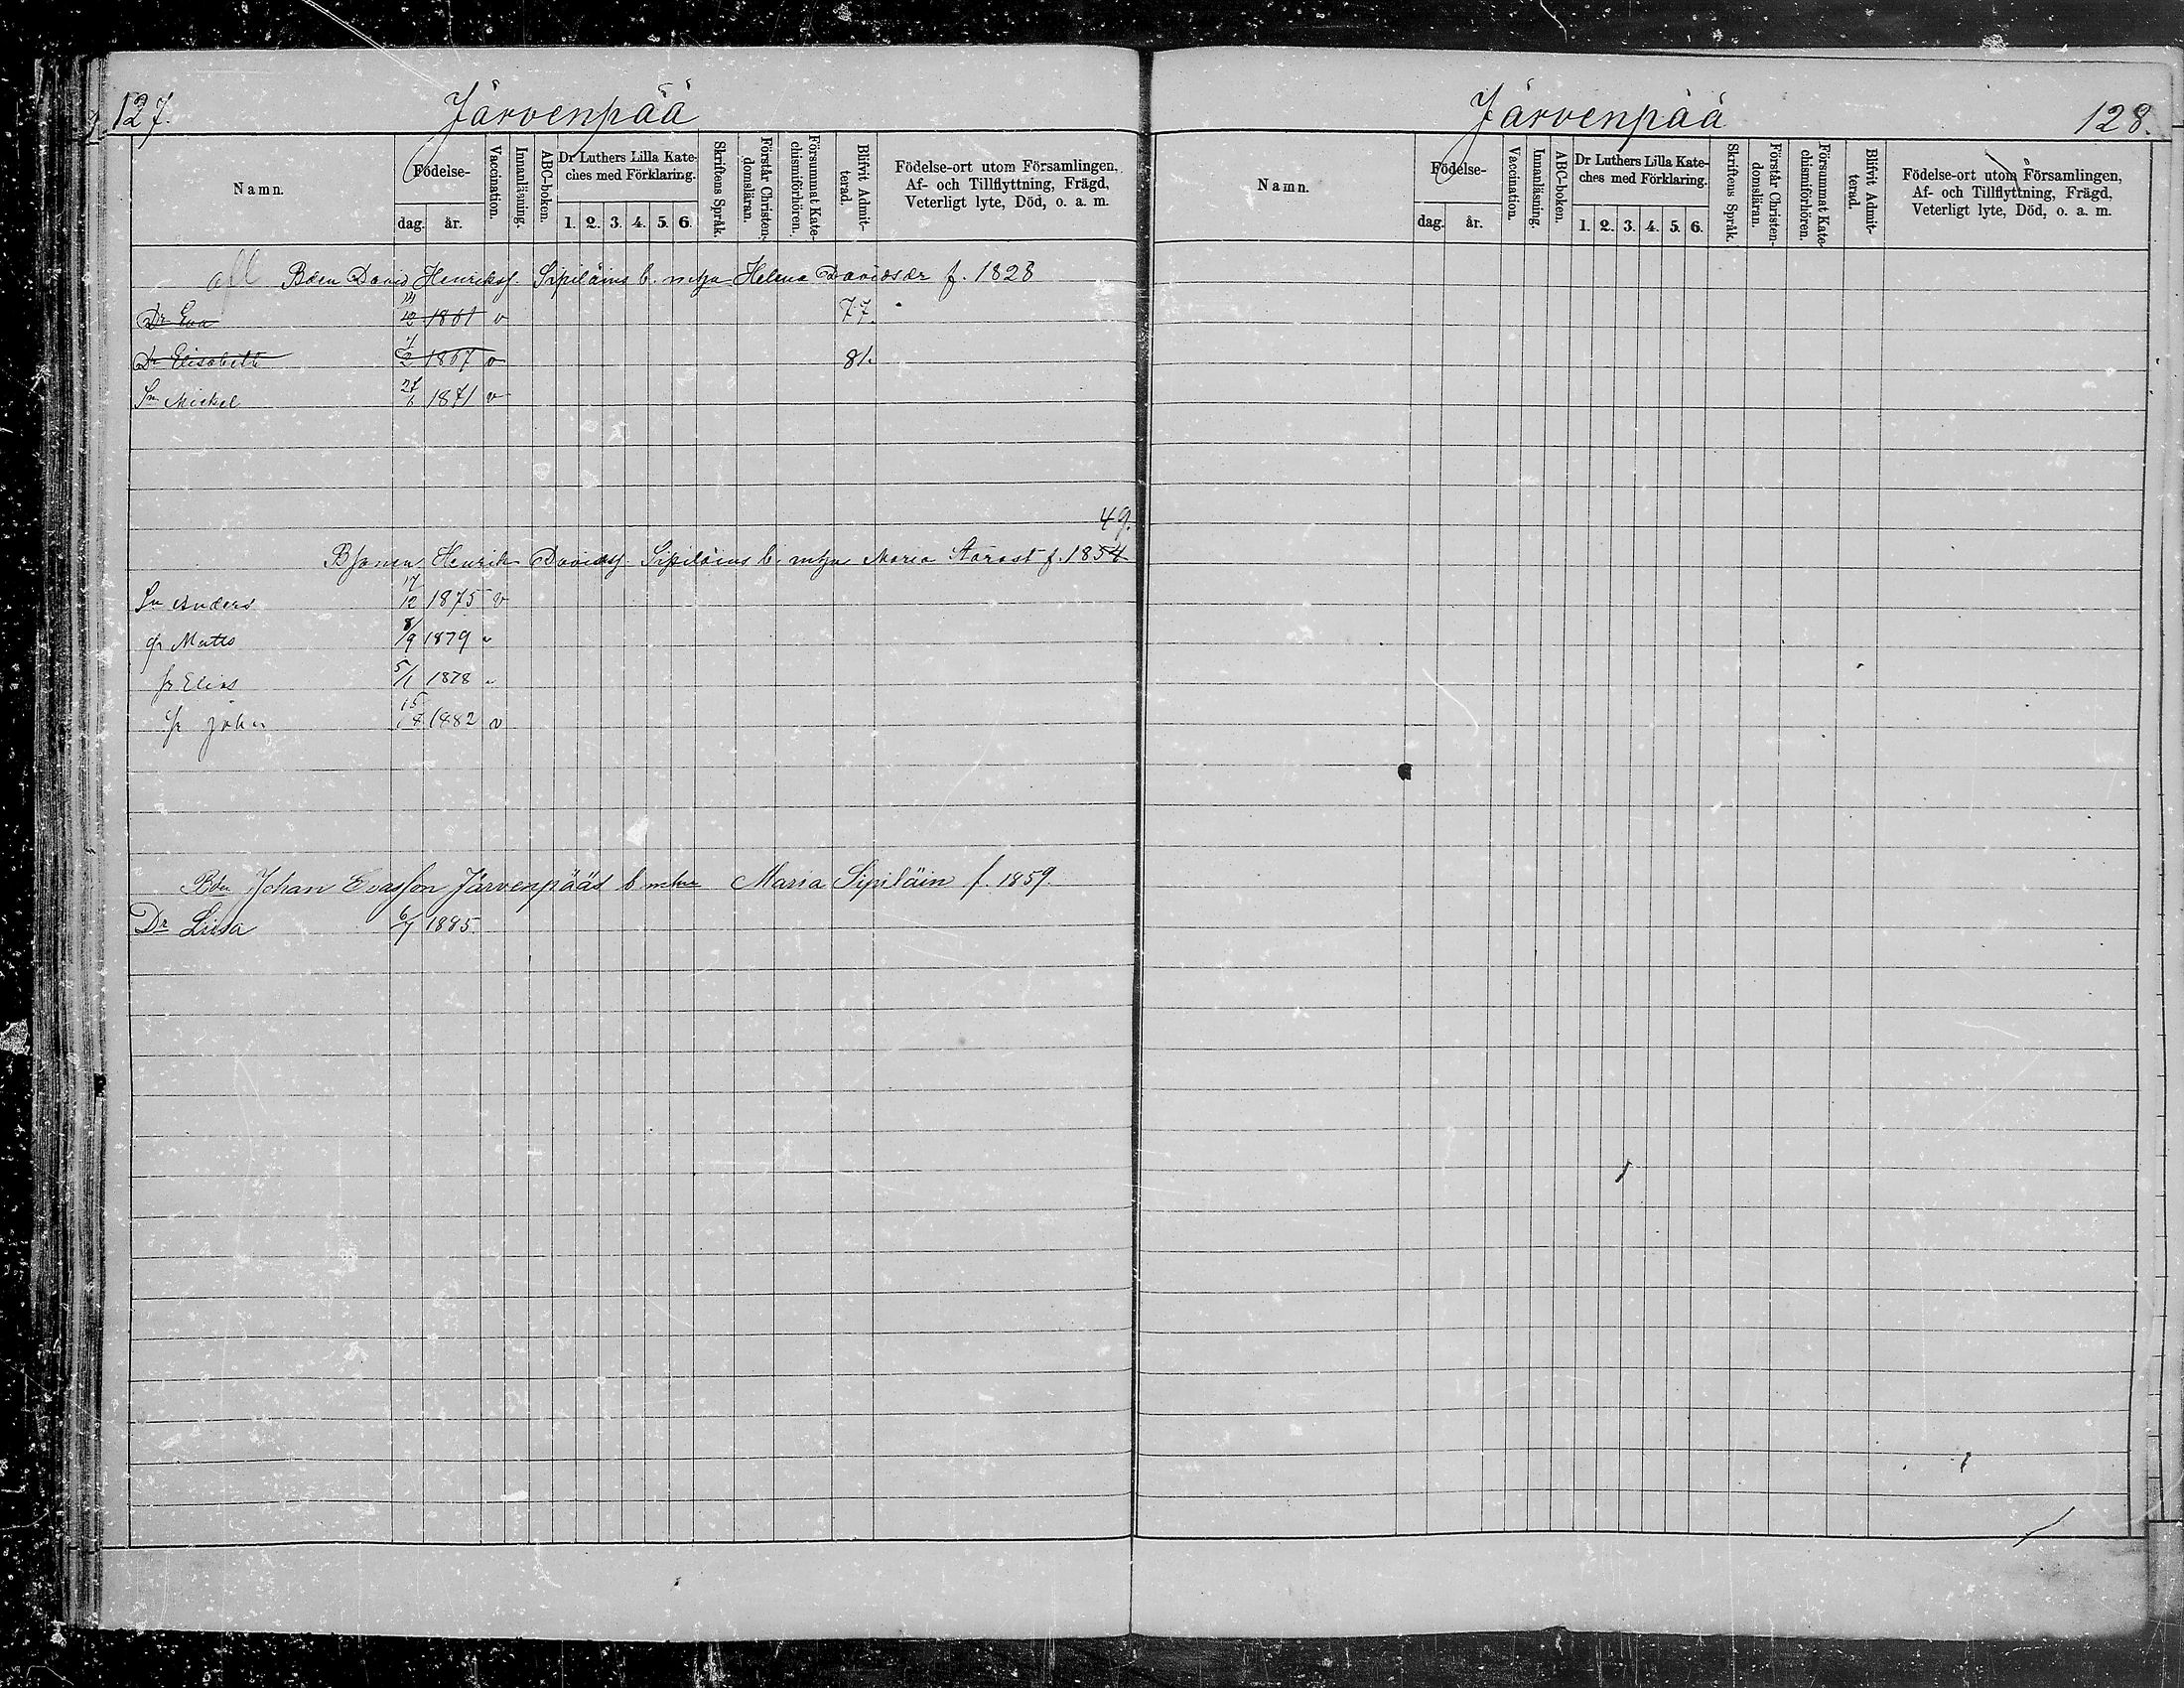 127. Järvenpää
Namn. Födelse- dag. år. Vaccination. Innanläsning. ABC-boken. Dr Luthers Lilla Kateches med Förklaring. 1. 2. 3. 4. 5. 6. Skriftens Språk. Förstår Christendomsläran. Försummat Katechismiförhören. Blifvit Admitterad. Födelse-ort utom Församlingen, Af- och Tillflyttning, Frägd, Veterligt lyte, Död, o. a. m.
afl Bden David Henrikss. Sipiläins b. m hja Helena Davidsdr f. 1828
Dr Eva 12 1861 v 77.
Dr Elisabeth 7/2 1867 v 81.
Sn Mickel 27/6 1871 v
49.
Bsonen Henrik Davidss. Sipiläins b. m hja Maria Storast f. 1854
Sn Anders 17/12 1875 v
Sn Matts 8/9 1879 v
Sn Elias 5/1 1878 v
Sn Johan 15/8 1882 v
Bdn Johan Evasson Järvenpääs b m hu Maria Sipiläin f. 1859.
Dr Liisa 6/7 1885.
Järvenpää 128.
Namn. Födelse- dag. år. Vaccination. Innanläsning. ABC-boken. Dr Luthers Lilla Kateches med Förklaring. 1. 2. 3. 4. 5. 6. Skriftens Språk. Förstår Christendomsläran. Försummat Katechismiförhören. Blifvit Admitterad. Födelse-ort utom Församlingen, Af- och Tillflyttning, Frägd, Veterligt lyte, Död, o. a. m.